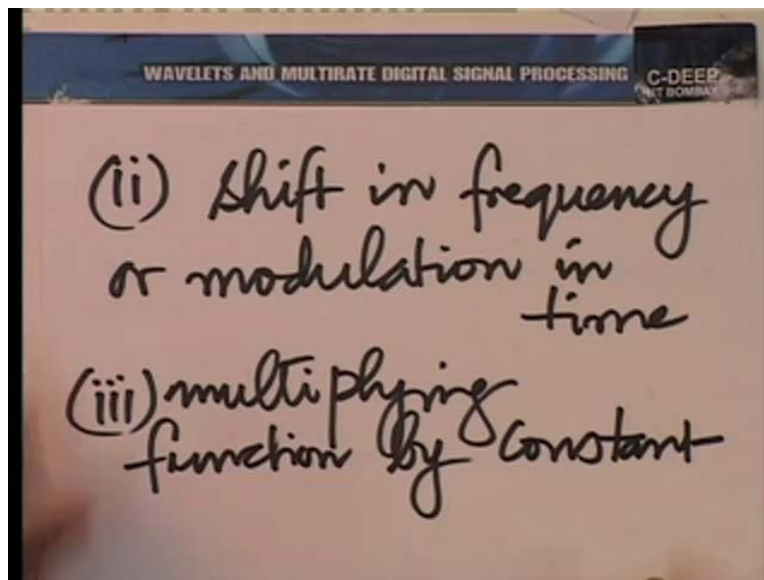 WAVELETS AND MULTIRATE DIGITAL SIGNAL PROCESSING
C-DEEP
IIT BOMBAY
(ii) shift in frequency
or modulation in
time
(iii) multiplying
function by constant